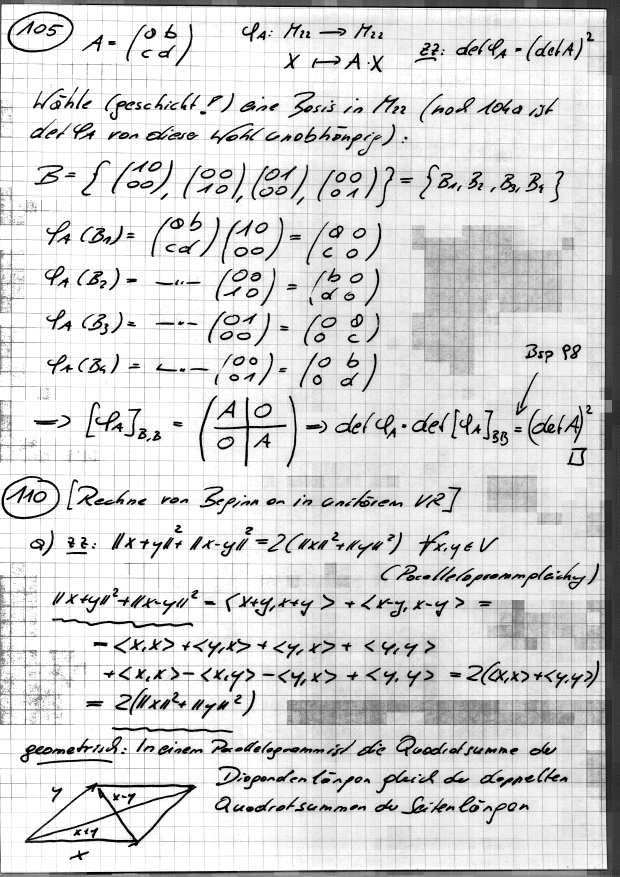 105 A = (a b / c d) φ_A: M₂₂ → M₂₂
X ↦ A·X zz: det φ_A = (det A)²
Wähle (geschickt!) eine Basis in M₂₂ (nach 104a ist
det φ_A von dieser Wahl unabhängig):
B = { (1 0 / 0 0), (0 0 / 1 0), (0 1 / 0 0), (0 0 / 0 1) } = {B₁, B₂, B₃, B₄}
φ_A (B₁) = (a b / c d) (1 0 / 0 0) = (a 0 / c 0)
φ_A (B₂) = —"— (0 0 / 1 0) = (b 0 / d 0)
φ_A (B₃) = —"— (0 1 / 0 0) = (0 a / 0 c)
φ_A (B₄) = —"— (0 0 / 0 1) = (0 b / 0 d)
Bsp 98
⇒ [φ_A]_{B,B} = (A | 0 / 0 | A) ⇒ det φ_A = det [φ_A]_{BB} = (det A)²
□
110 [Rechne von Beginn an in unitärem VR]
a) zz: ||x+y||² + ||x-y||² = 2(||x||² + ||y||²) ∀x,y ∈ V
(Parallelogrammgleichg)
||x+y||² + ||x-y||² = <x+y, x+y> + <x-y, x-y> =
= <x,x> + <y,x> + <y,x> + <y,y>
+ <x,x> - <x,y> - <y,x> + <y,y> = 2(<x,x> + <y,y>)
= 2(||x||² + ||y||²)
geometrisch: In einem Parallelogramm ist die Quadratsumme der
Diagonalenlängen gleich der doppelten
Quadratsummen der Seitenlängen
y x-y
x+y
x